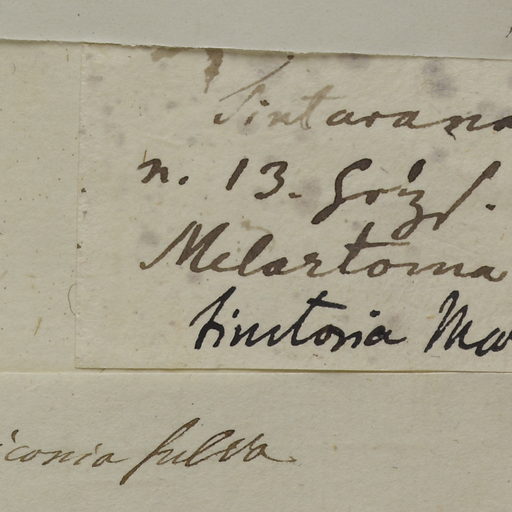 Sintarana
n. 13. Gózd.
Melastoma
tinctoria Ma
iconia fulva